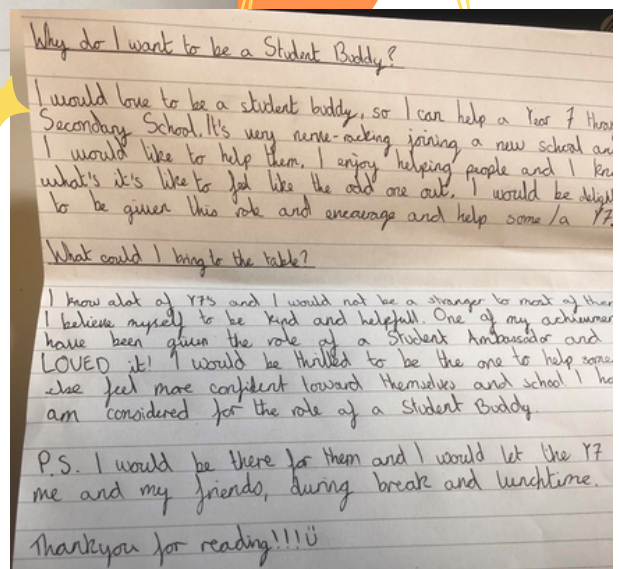 Why do I want to be a Student Buddy?
I would love to be a student buddy, so I can help a Year 7
Secondary School. It's very nerve-racking joining a new school
I would like to help them. I enjoy helping people and I
what's it's like to feel like the odd one out. I would be
to be given this role and encourage and help some/a Y7
What could I bring to the table?
I know alot of Y7s and I would not be a stranger to most of
I believe myself to be kind and helpfull. One of my
have been given the role of a Student Ambassador and
LOVED it! I would be thrilled to be the one to help
else feel more confident toward themselves and school I
am considered for the role of a Student Buddy.
P.S. I would be there for them and I would let the Y7
me and my friends, during break and lunchtime.
Thankyou for reading!!!